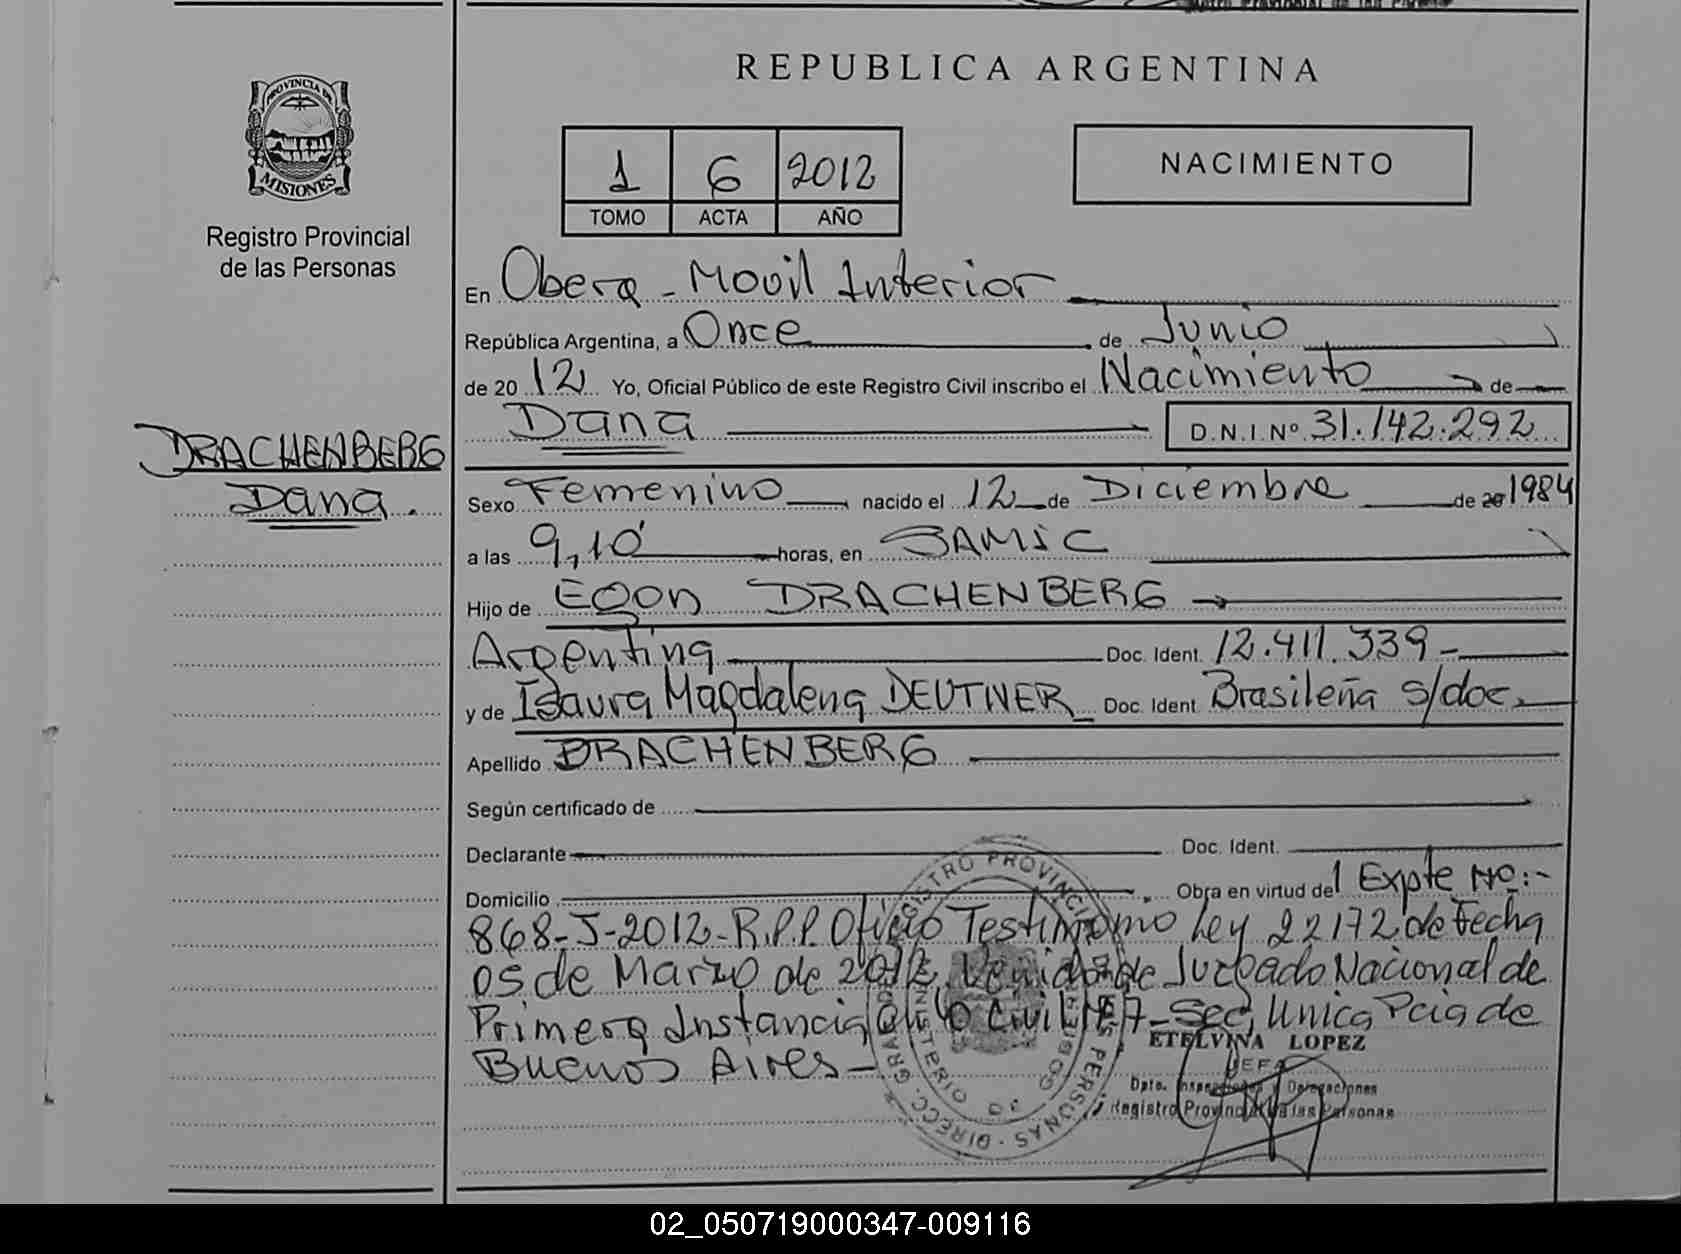 REPUBLICA ARGENTINA
PROVINCIA DE
MISIONES
Registro Provincial
de las Personas
1 6 2012
TOMO ACTA AÑO
NACIMIENTO
En Obera - Movil Interior
República Argentina, a Once de Junio
de 20 12 Yo, Oficial Público de este Registro Civil inscribo el Nacimiento de
Dana D.N.I.Nº 31.142.292
DRACHENBERG
Dana.
Sexo Femenino nacido el 12 de Diciembre de 20 1984
a las 9,10 horas, en SAMIC
Hijo de Egon DRACHENBERG
Argentina Doc. Ident. 12.411.339-
y de Isaura Magdalena DEUTNER Doc. Ident Brasileña s/doc.
Apellido DRACHENBERG
Según certificado de
Declarante Doc. Ident.
Domicilio Obra en virtud del Expte Nº:-
868-J-2012-R.P.P. Oficio Testimonio Ley 22172 de Fecha
05 de Marzo de 2012 Venido de Juzgado Nacional de
Primera Instancia en lo Civil Nº 7- Sec. Unica Pcia de
Buenos Aires-
ETELVINA LOPEZ
JEFA
Dpto. Inspecciones y Delegaciones
Registro Provincial de las Personas
DIRECC. GRAL. DE REGISTRO PROVINCIAL DE LAS PERSONAS
MINISTERIO DE GOBIERNO
02_050719000347-009116